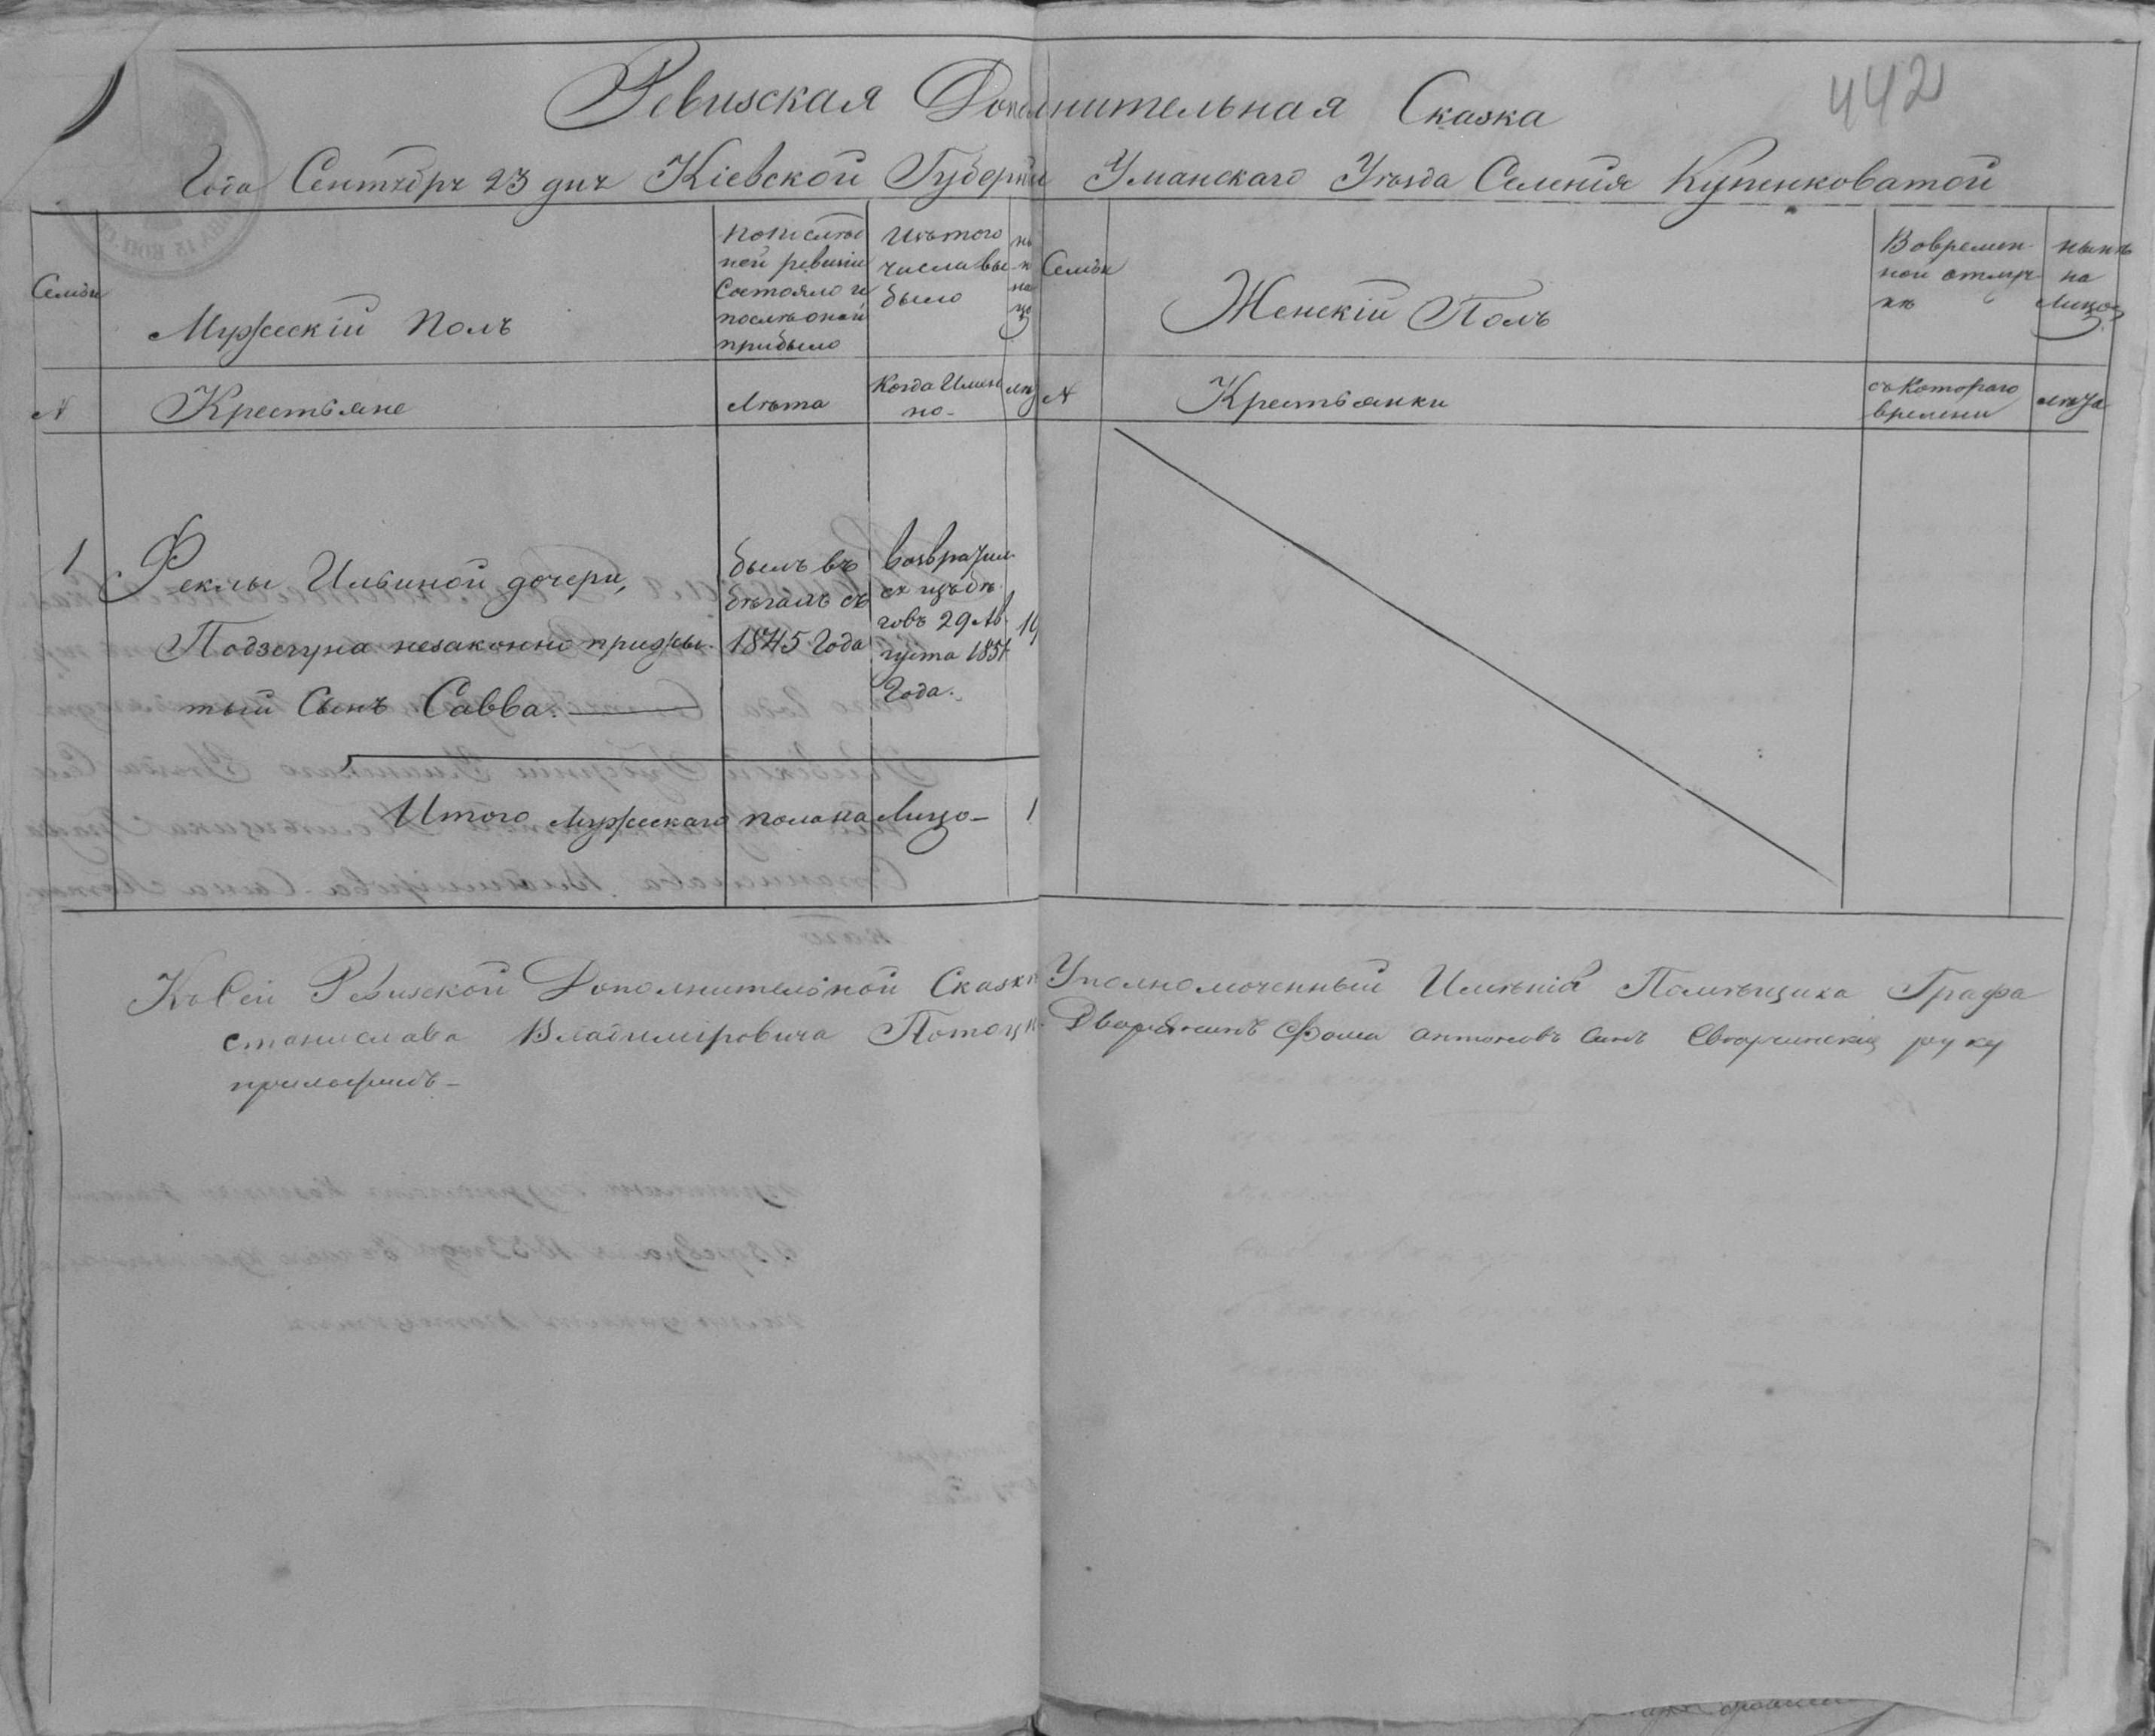 442
Ревизская Дополнительная Сказка
Года Сентября 23 дня Кіевской Губерніи Уманскаго Уѣзда Селенія Купенковатой
Семьи
Мужескій Полъ
По послѣд
ней ревизіи
Состояло и
послѣ оной
прибыло
Изъ того
числа вы
было
Семьи
Женскій Полъ
Вовремен
ной отлуч
кѣ
нынѣ
на
Лицо
N
Крестьяне
Лѣта
Когда Имен
но
N
Крестьянки
съ Котораго
времени
лѣта
1
Феклы Ильиной дочери,
Подзегуна незаконно прижы
тый Сынъ Савва.
былъ въ
бѣгахъ съ
1845 Года
возвратил
ся изъ бѣ
говъ 29 Ав
густа 1851
Года.
19
Итого Мужескаго пола на Лицо 1
Къ Сей Ревизской Дополнительной Сказкѣ Уполномоченный Имѣнія Помѣщика Графа
Станислава Владиміровича Потоцк. Дворянинъ Фома Антоновъ Сынъ руку
приложилъ